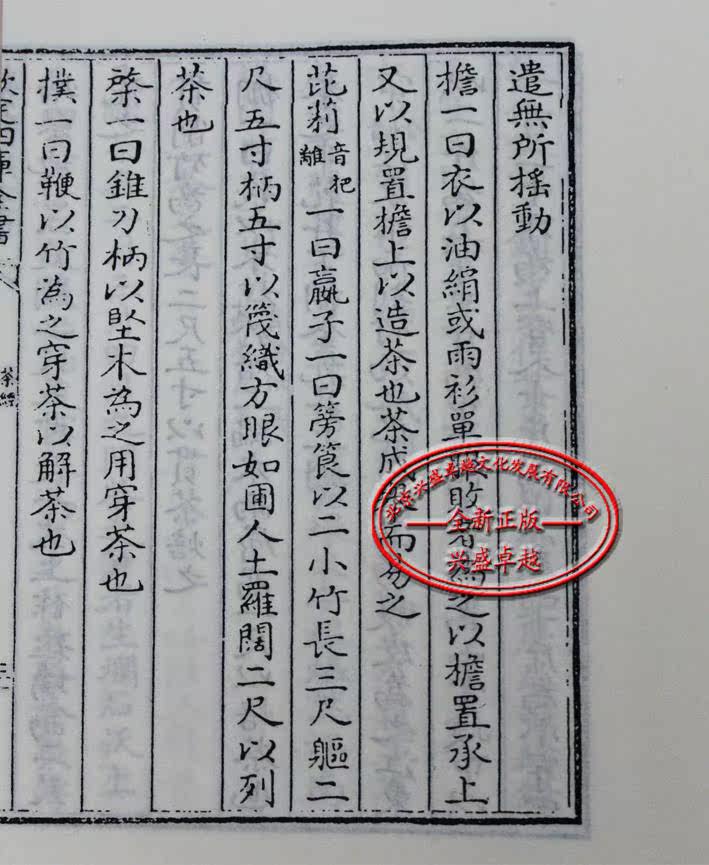 遣無所揺動
檐一曰衣以油絹或雨衫單敗之以檐置承上
又以規置檐上以造茶也茶成而易之
芘莉音杷離一曰嬴子一曰篣筤以二小竹長三尺軀二
尺五寸柄五寸以篾織方眼如圃人土羅闊二尺以列
茶也
棨一曰錐刀柄以堅木為之用穿茶也
撲一曰鞭以竹為之穿茶以解茶也
定四庫全書
茶經
北京兴盛卓越文化发展有限公司
全新正版
兴盛卓越